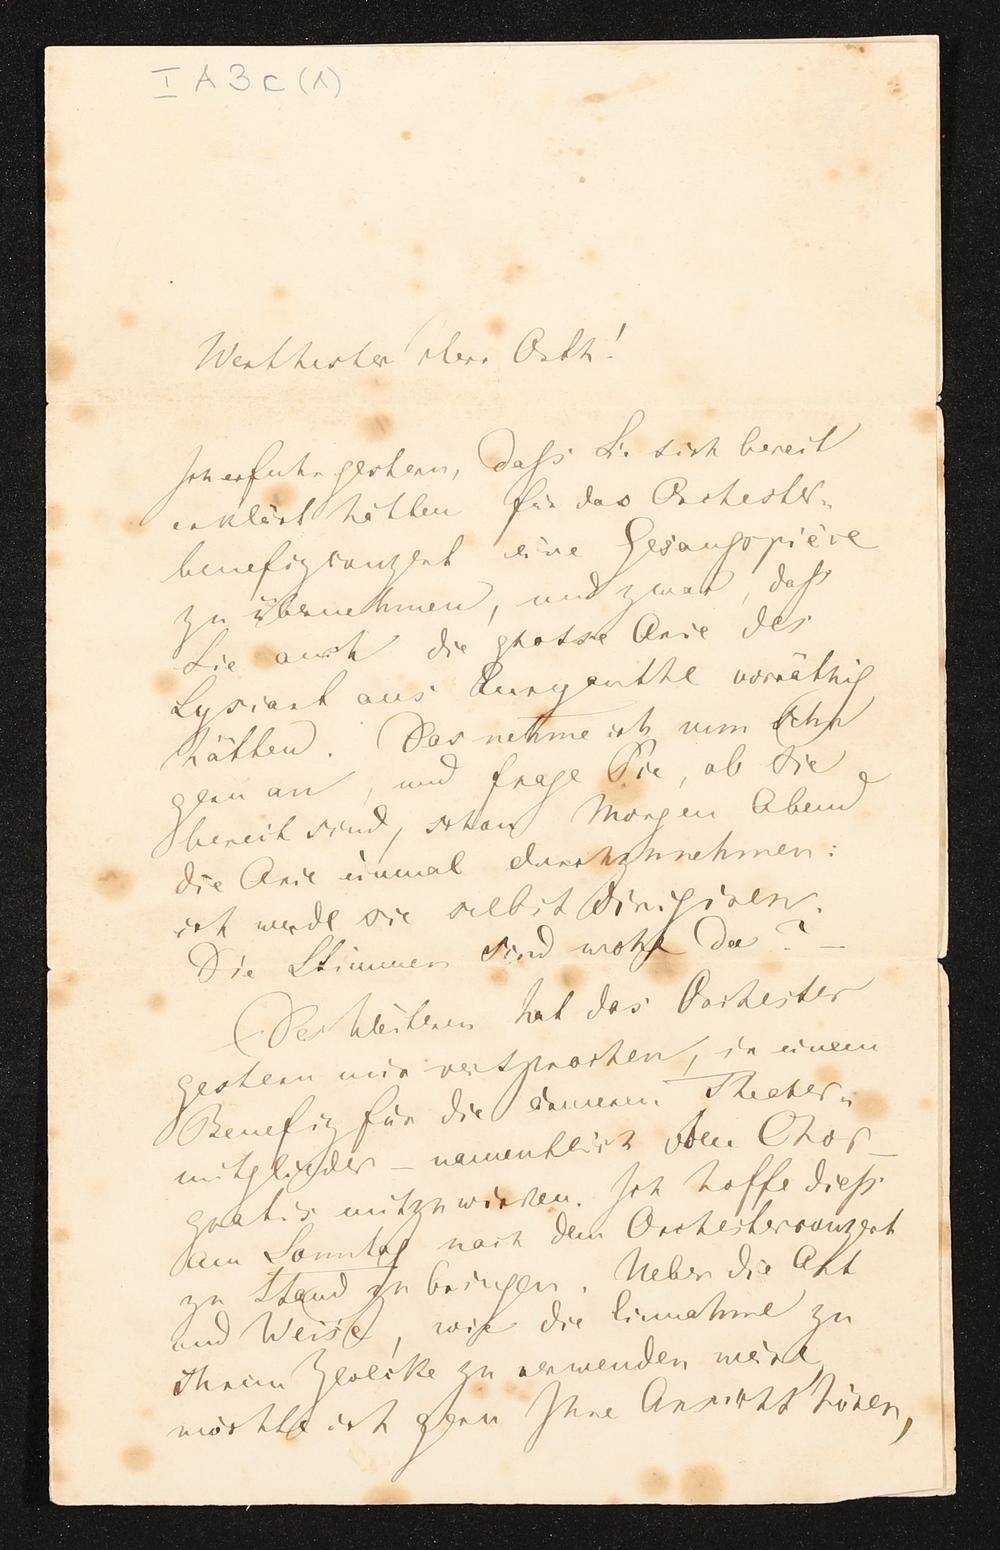 I A 3 c (1)
Werthester Herr Osth!
Ich erfuhr gestern, daß Sie sich bereit
erklärt hätten für das Orchester-
benefizconzert eine Gesangspièce
zu übernehmen, und zwar, daß
Sie auch die grosse Arie des
Lysiart aus Euryanthe vorräthig
hätten. Das nehme ich nun sehr
gern an, und frage Sie, ob Sie
bereit sind, schon Morgen Abend
die Arie einmal durchzunehmen:
ich werde sie selbst dirigiren.
Die Stimmen sind wohl da? –
Des Weiteren hat das Orchester
gestern mir versprochen, in einem
Benefiz für die ärmeren Theater-
mitglieder – namentlich den Chor –
gratis mitzuwirken. Ich hoffe dieß
am Sonntag nach dem Orchesterconzert
zu Stand zu bringen. Ueber die Art
und Weise, wie die Einnahme zu
ihrem Zwecke zu verwenden wäre,
möchte ich gern Ihre Ansicht hören,